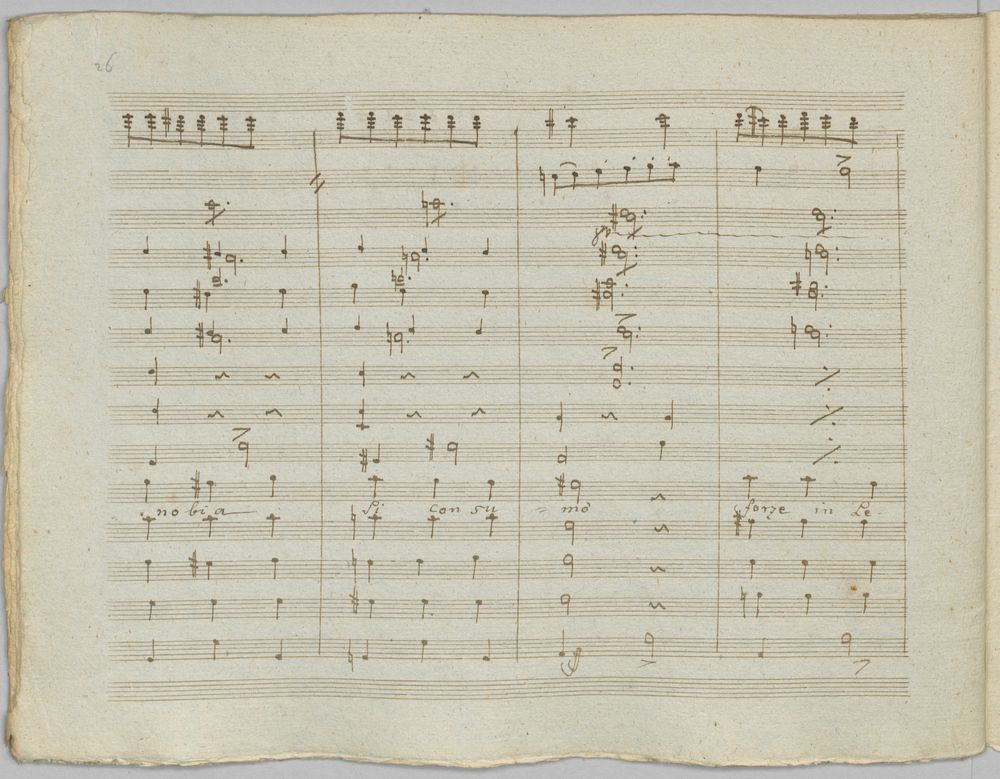 26
8va
no bi a si con su = mò forze in Le-